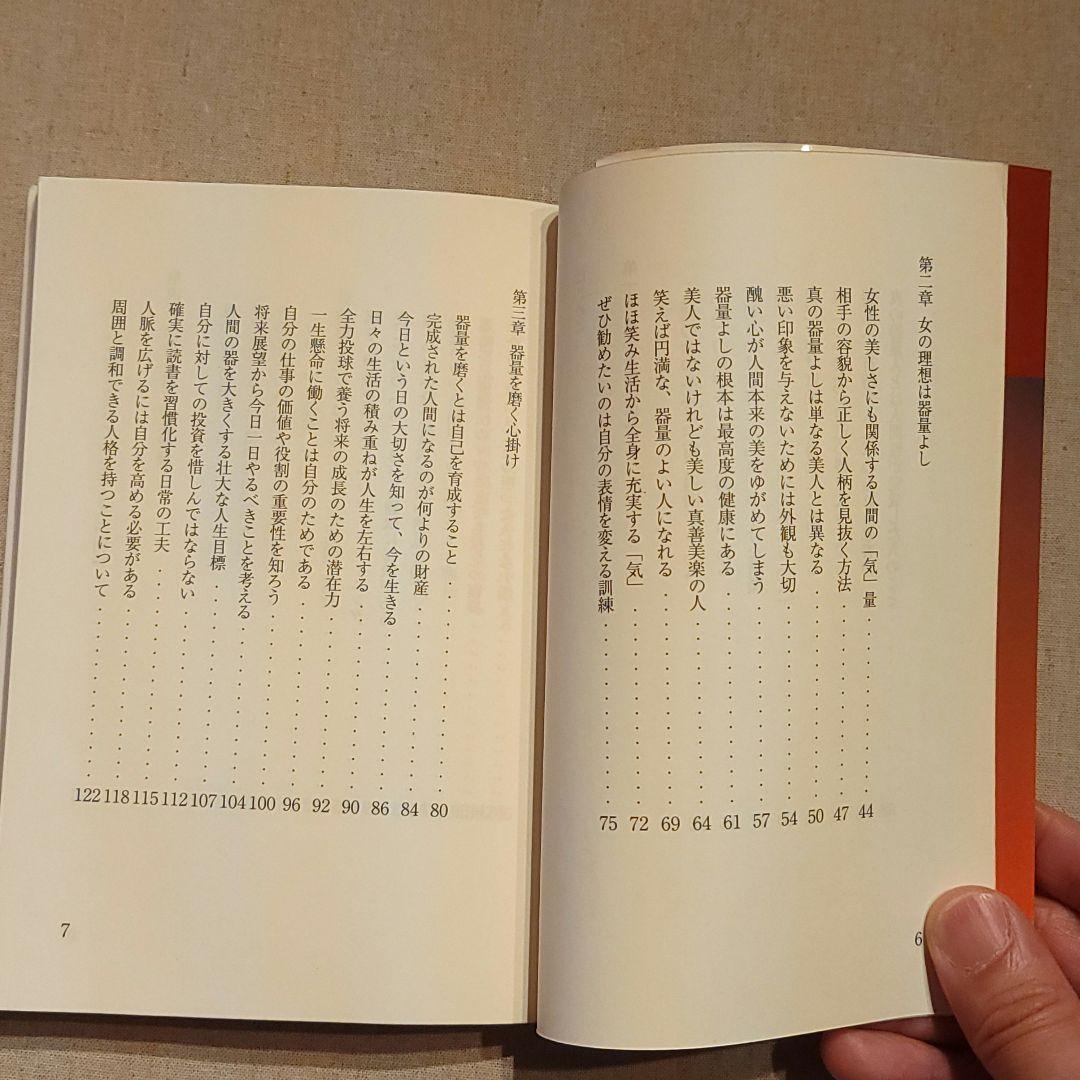 第二章 女の理想は器量よし
女性の美しさにも関係する人間の「気」量 44
相手の容貌から正しく人柄を見抜く方法 47
真の器量よしは単なる美人とは異なる 50
悪い印象を与えないためには外観も大切 54
醜い心が人間本来の美をゆがめてしまう 57
器量よしの根本は最高度の健康にある 61
美人ではないけれども美しい真善美楽の人 64
笑えば円満な、器量のよい人になれる 69
ほほ笑み生活から全身に充実する「気」 72
ぜひ勧めたいのは自分の表情を変える訓練 75
6
第三章 器量を磨く心掛け
器量を磨くとは自己を育成すること 80
完成された人間になるのが何よりの財産 84
今日という日の大切さを知って、今を生きる 86
日々の生活の積み重ねが人生を左右する 90
全力投球で養う将来の成長のための潜在力 92
一生懸命に働くことは自分のためである 96
自分の仕事の価値や役割の重要性を知ろう 100
将来展望から今日一日やるべきことを考える 104
人間の器を大きくする壮大な人生目標 107
自分に対しての投資を惜しんではならない 112
確実に読書を習慣化する日常の工夫 115
人脈を広げるには自分を高める必要がある 118
周囲と調和できる人格を持つことについて 122
7